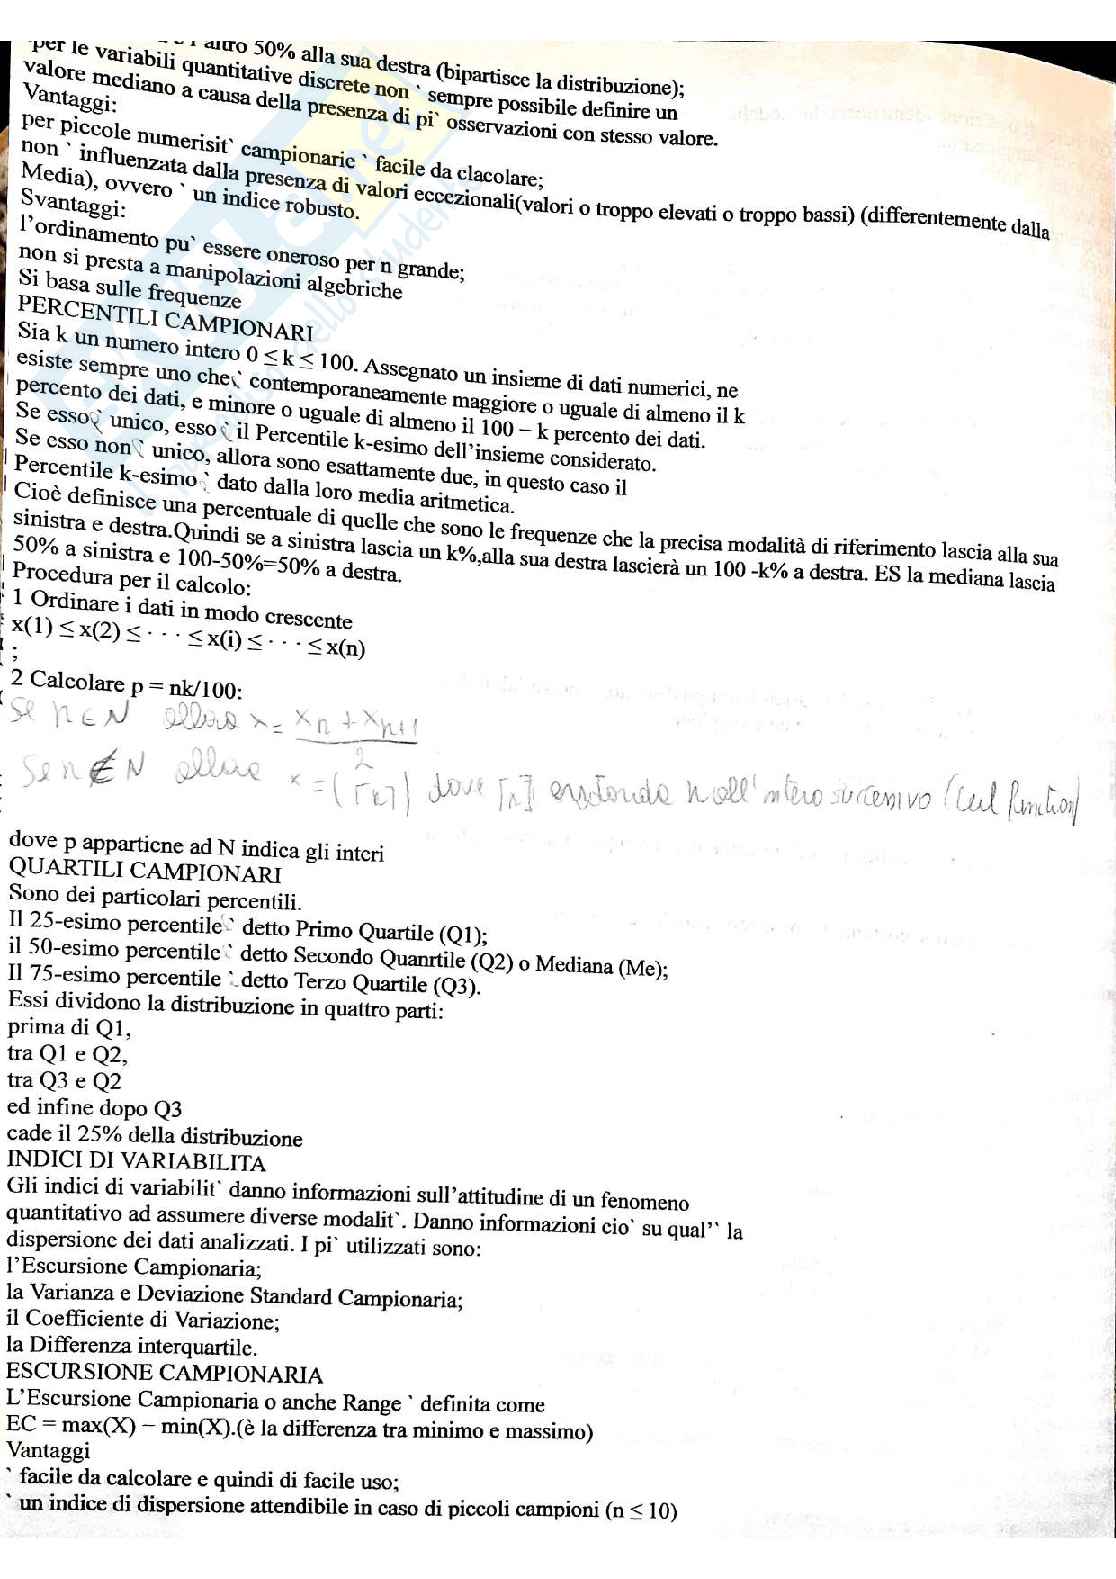 l'altro 50% alla sua destra (bipartisce la distribuzione);
per le variabili quantitative discrete non ` sempre possibile definire un
valore mediano a causa della presenza di pi` osservazioni con stesso valore.
Vantaggi:
per piccole numerisit` campionarie ` facile da clacolare;
non ` influenzata dalla presenza di valori eccezionali(valori o troppo elevati o troppo bassi) (differentemente dalla
Media), ovvero ` un indice robusto.
Svantaggi:
l'ordinamento pu` essere oneroso per n grande;
non si presta a manipolazioni algebriche
Si basa sulle frequenze
PERCENTILI CAMPIONARI
Sia k un numero intero 0 ≤ k ≤ 100. Assegnato un insieme di dati numerici, ne
esiste sempre uno che` contemporaneamente maggiore o uguale di almeno il k
percento dei dati, e minore o uguale di almeno il 100 – k percento dei dati.
Se esso ` unico, esso ` il Percentile k-esimo dell'insieme considerato.
Se esso non ` unico, allora sono esattamente due, in questo caso il
Percentile k-esimo ` dato dalla loro media aritmetica.
Cioè definisce una percentuale di quelle che sono le frequenze che la precisa modalità di riferimento lascia alla sua
sinistra e destra.Quindi se a sinistra lascia un k%,alla sua destra lascierà un 100 -k% a destra. ES la mediana lascia
50% a sinistra e 100-50%=50% a destra.
Procedura per il calcolo:
1 Ordinare i dati in modo crescente
x(1) ≤ x(2) ≤ · · · ≤ x(i) ≤ · · · ≤ x(n)
;
2 Calcolare p = nk/100:
Se n ∈ N allora x = (x_n + x_n+1)/2
Se n ∉ N allora x = (⌈n⌉) dove ⌈n⌉ arrotonda n all'intero successivo (ceil function)
dove p appartiene ad N indica gli interi
QUARTILI CAMPIONARI
Sono dei particolari percentili.
Il 25-esimo percentile ` detto Primo Quartile (Q1);
il 50-esimo percentile ` detto Secondo Quanrtile (Q2) o Mediana (Me);
Il 75-esimo percentile ` detto Terzo Quartile (Q3).
Essi dividono la distribuzione in quattro parti:
prima di Q1,
tra Q1 e Q2,
tra Q3 e Q2
ed infine dopo Q3
cade il 25% della distribuzione
INDICI DI VARIABILITA
Gli indici di variabilit` danno informazioni sull'attitudine di un fenomeno
quantitativo ad assumere diverse modalit`. Danno informazioni cio` su qual'' la
dispersione dei dati analizzati. I pi` utilizzati sono:
l'Escursione Campionaria;
la Varianza e Deviazione Standard Campionaria;
il Coefficiente di Variazione;
la Differenza interquartile.
ESCURSIONE CAMPIONARIA
L'Escursione Campionaria o anche Range ` definita come
EC = max(X) – min(X).(è la differenza tra minimo e massimo)
Vantaggi
` facile da calcolare e quindi di facile uso;
` un indice di dispersione attendibile in caso di piccoli campioni (n ≤ 10)